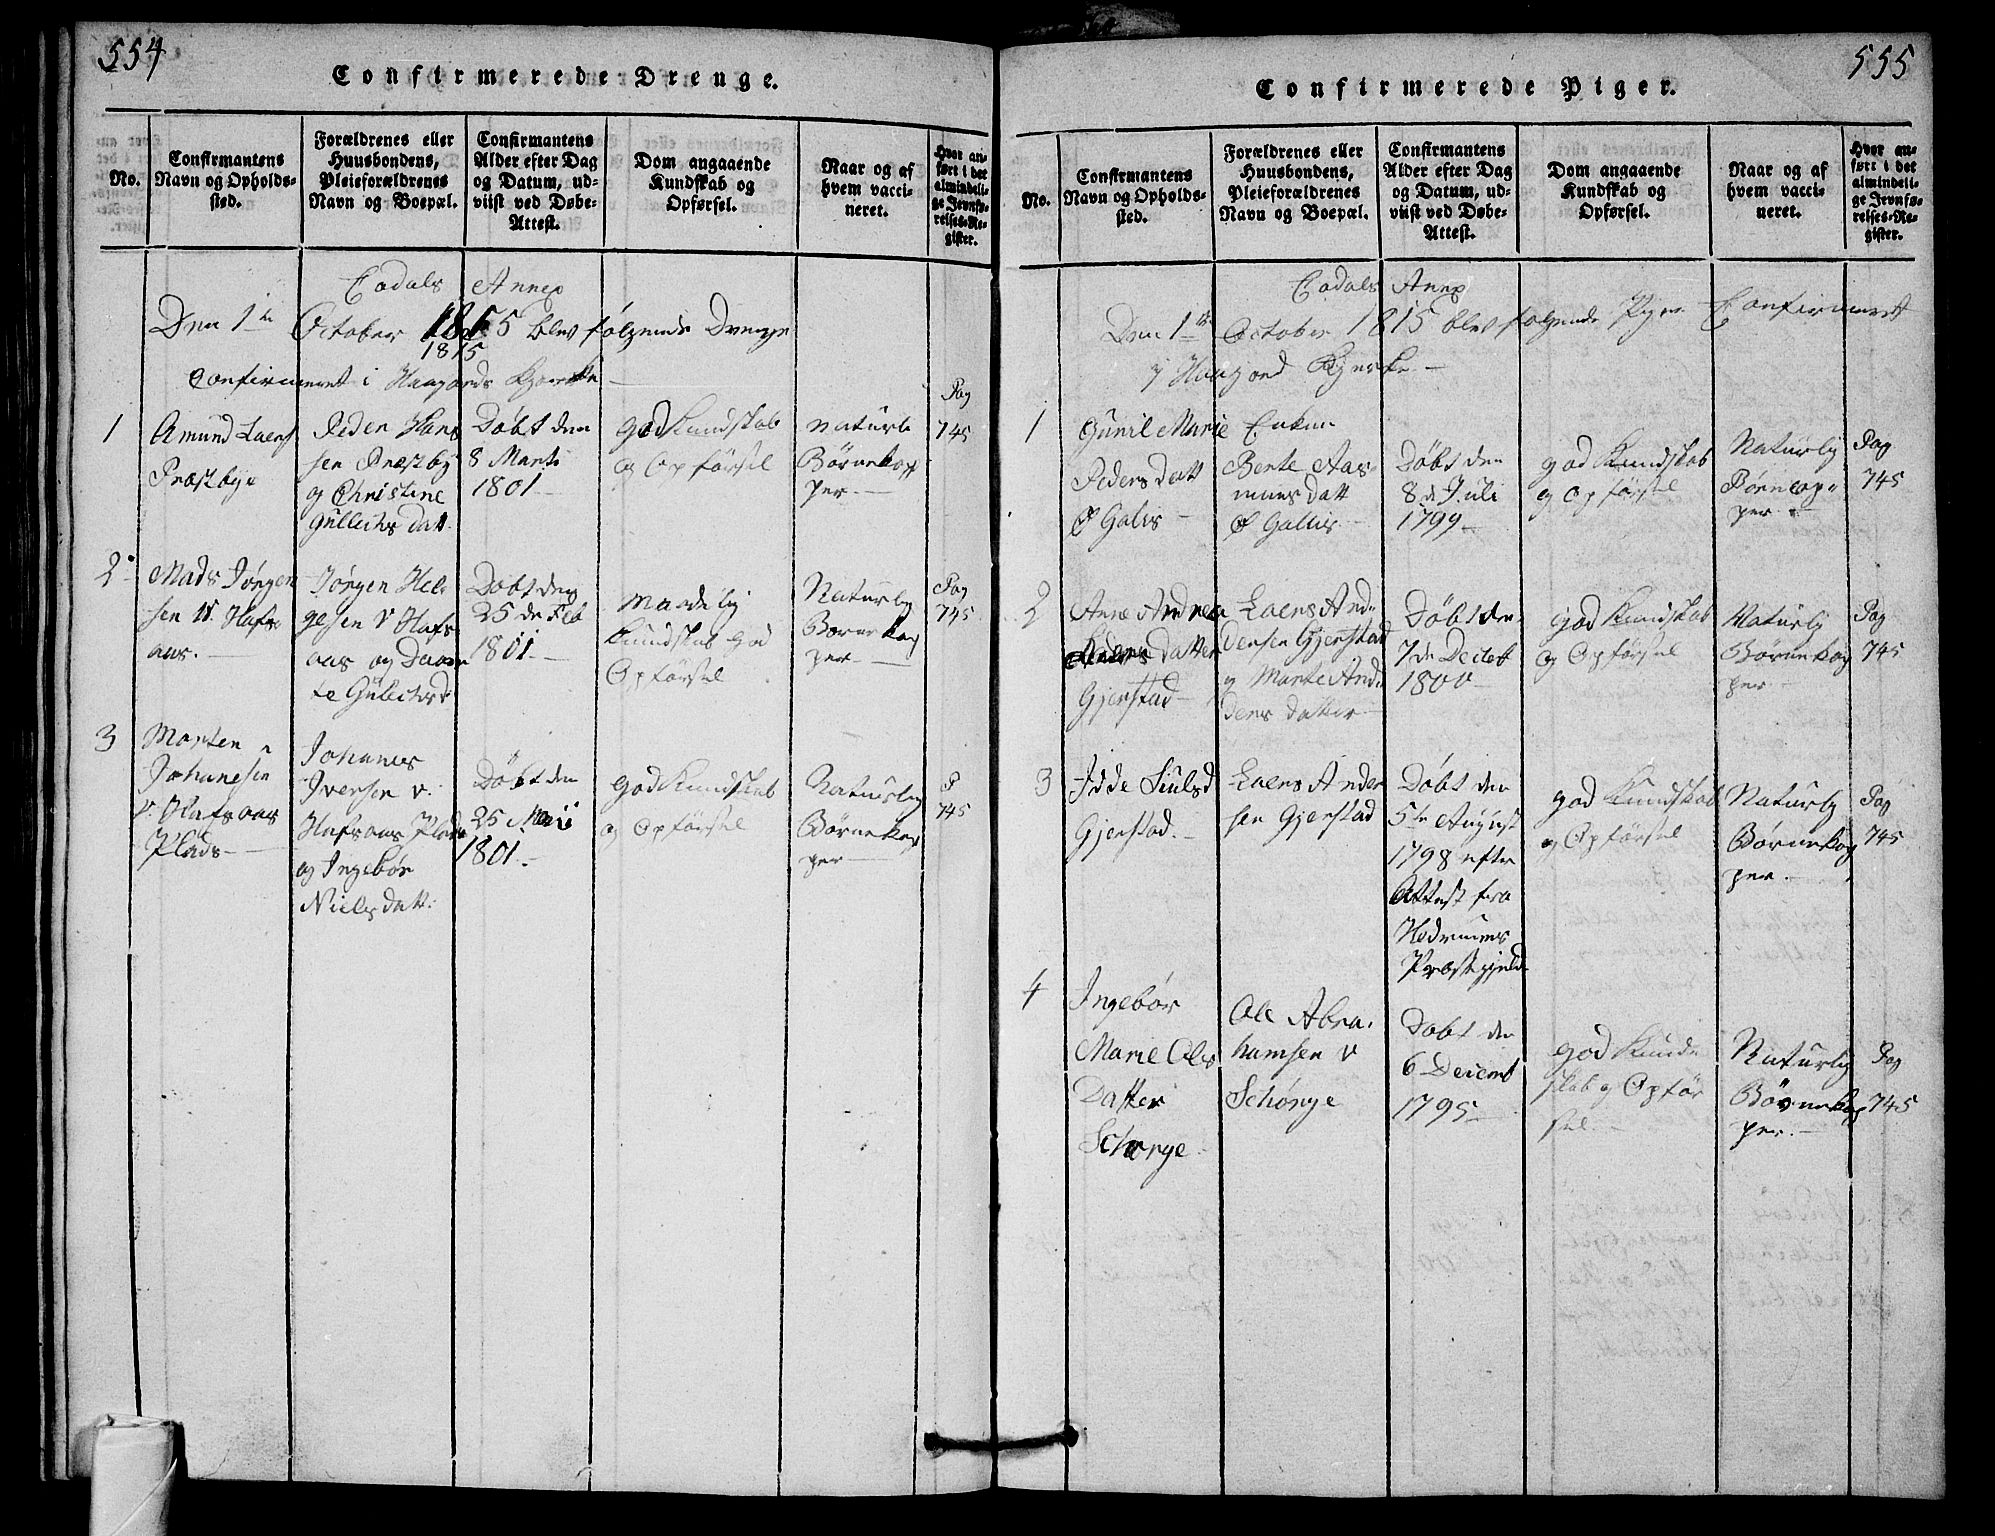 554
Confirmerede Drenge.
No.
Confirmantens
Navn og Opholds-
sted.
Forældrenes eller
Huusbondens,
Pleieforældrenes
Navn og Boepæl.
Confirmantens
Alder efter Dag
og Datum, ud-
viist ved Døbe-
Attest.
Dom angaaende
Kundskab og
Opførsel.
Naar og af
hvem vacci-
neret.
Hvor an-
ført i det
almindeli-
ge Jevnfø-
relses-Re-
gister.
Annex
Den 1te October 1815 blev følgende Drenge
1815
Confirmeret i Kjerke
1
Amund Laers
Præstbye
Peder Han
sen Præstby
og Christine
Gullichs dat.
Døbt den
8 Marti
1801
god Kundskab
og Opførsel
Naturli
Børnekop
per.
Pag
745
2
Mads Jørgen
sen V. Hafs
aas.
Jørgen Hel
gesen V Hafs
aas og
te Gulichsd
Døbt den
25 de Feb
1801
Maadelig
kundskab god
Opførsel
Naturlig
Børnekop
per
Pag
745
3
Morten
Johanesen
v. Hafsaas
Plads
Johannes
Iversen v.
Hafsaas Plads
og Ingebør
Niels datt.
Døbt den
25 Maii
1801.
god Kundskab
og Opførsel
Naturlig
Børnekop
per
P
745
555
Confirmerede Piger.
No.
Confirmantens
Navn og Opholds-
sted.
Forældrenes eller
Huusbondens,
Pleieforældrenes
Navn og Boepæl.
Confirmantens
Alder efter Dag
og Datum, ud-
viist ved Døbe-
Attest.
Dom angaaende
Kundskab og
Opførsel.
Naar og af
hvem vacci-
neret.
Hvor an-
ført i det
almindeli-
ge Jevnfø-
relses-Re-
gister.
Annex
Den 1te October 1815 blev følgende Piger Confirmeret
i Kjerke
1
Gunil Marie
Peders Datt
Ø Galis
Enken
Bente Aas-
muns datt
Ø Gallis
Døbt den
8 de Juli
1799
god Kundskab
og Opførsel
Naturlig
Børnekop-
per
Pag
745
2
Anne Andrea
Laers Datter
Gjerstad
Laers And
dersen Gjerstad
og Marte And
ders datter
Døbt den
7 de Decleb
1800
god Kundskab
og Opførsel
Naturlig
Børnekop
per
Pag
745
3
Idde
Gjerstad.
Laers Ander
sen Gjerstad
Døbt den
5te August
1798 efter
Attest fra
Hedrums
Præstegjeld
god Kundskab
og Opførsel
Naturlig
Børnekop
per.
Pag
745
4
Ingebør
Marie Ols
Datter
Schørge
Ole Abra-
hamsen v
Schørge
Døbt den
6 Decemb
1795
god Kund
skab og Opfør
sel.
Naturlig
Børnekop
per.
Pag
745